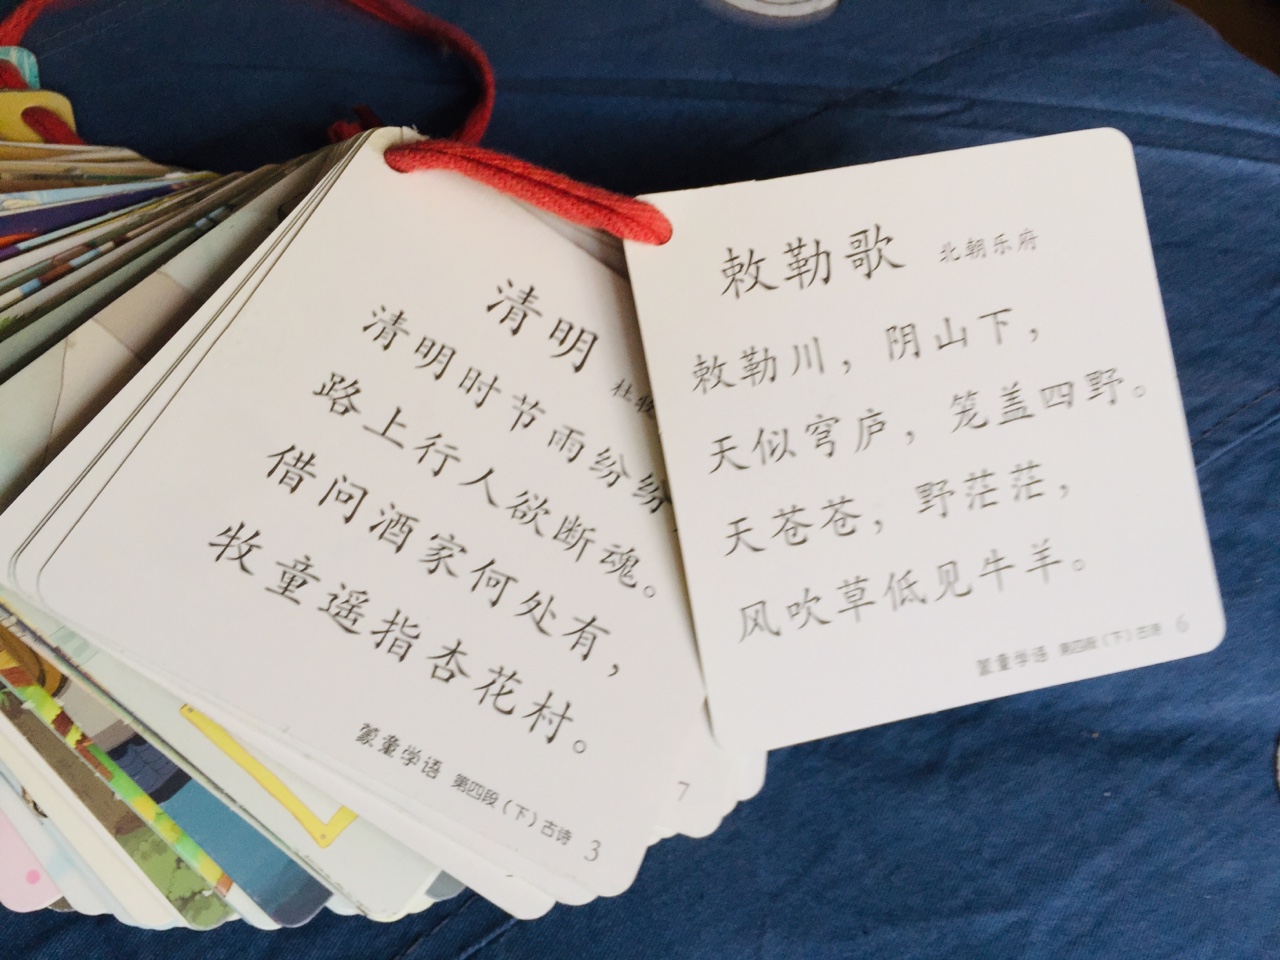 清明
杜牧
清明时节雨纷纷
路上行人欲断魂。
借问酒家何处有，
牧童遥指杏花村。
蒙童学语 第四段（下）古诗 3
7
敕勒歌 北朝乐府
敕勒川，阴山下，
天似穹庐，笼盖四野。
天苍苍，野茫茫，
风吹草低见牛羊。
蒙童学语 第四段（下）古诗 6